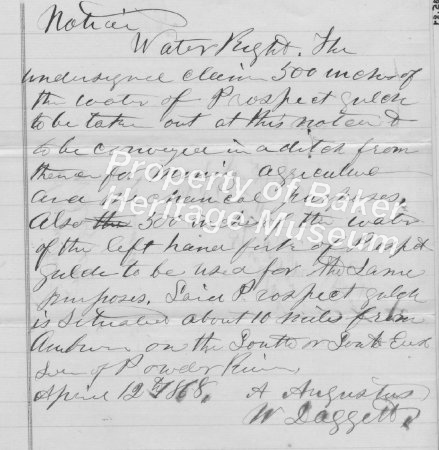 Notice
Water Right. The
undersigned claim 500 inches of
the water of Prospect gulch
to be taken out at this notice &
to be conveyed in a ditch from
thence for mining agriculture
and mechanical purposes.
Also 500 inches of the water
of the left hand fork of
gulch to be used for the same
purposes. Said Prospect gulch
is situated about 10 miles from
Auburn on the South or South East
side of Powder River
April 12th 1868. A Augustus
W Daggett
Property of Baker
Heritage Museum